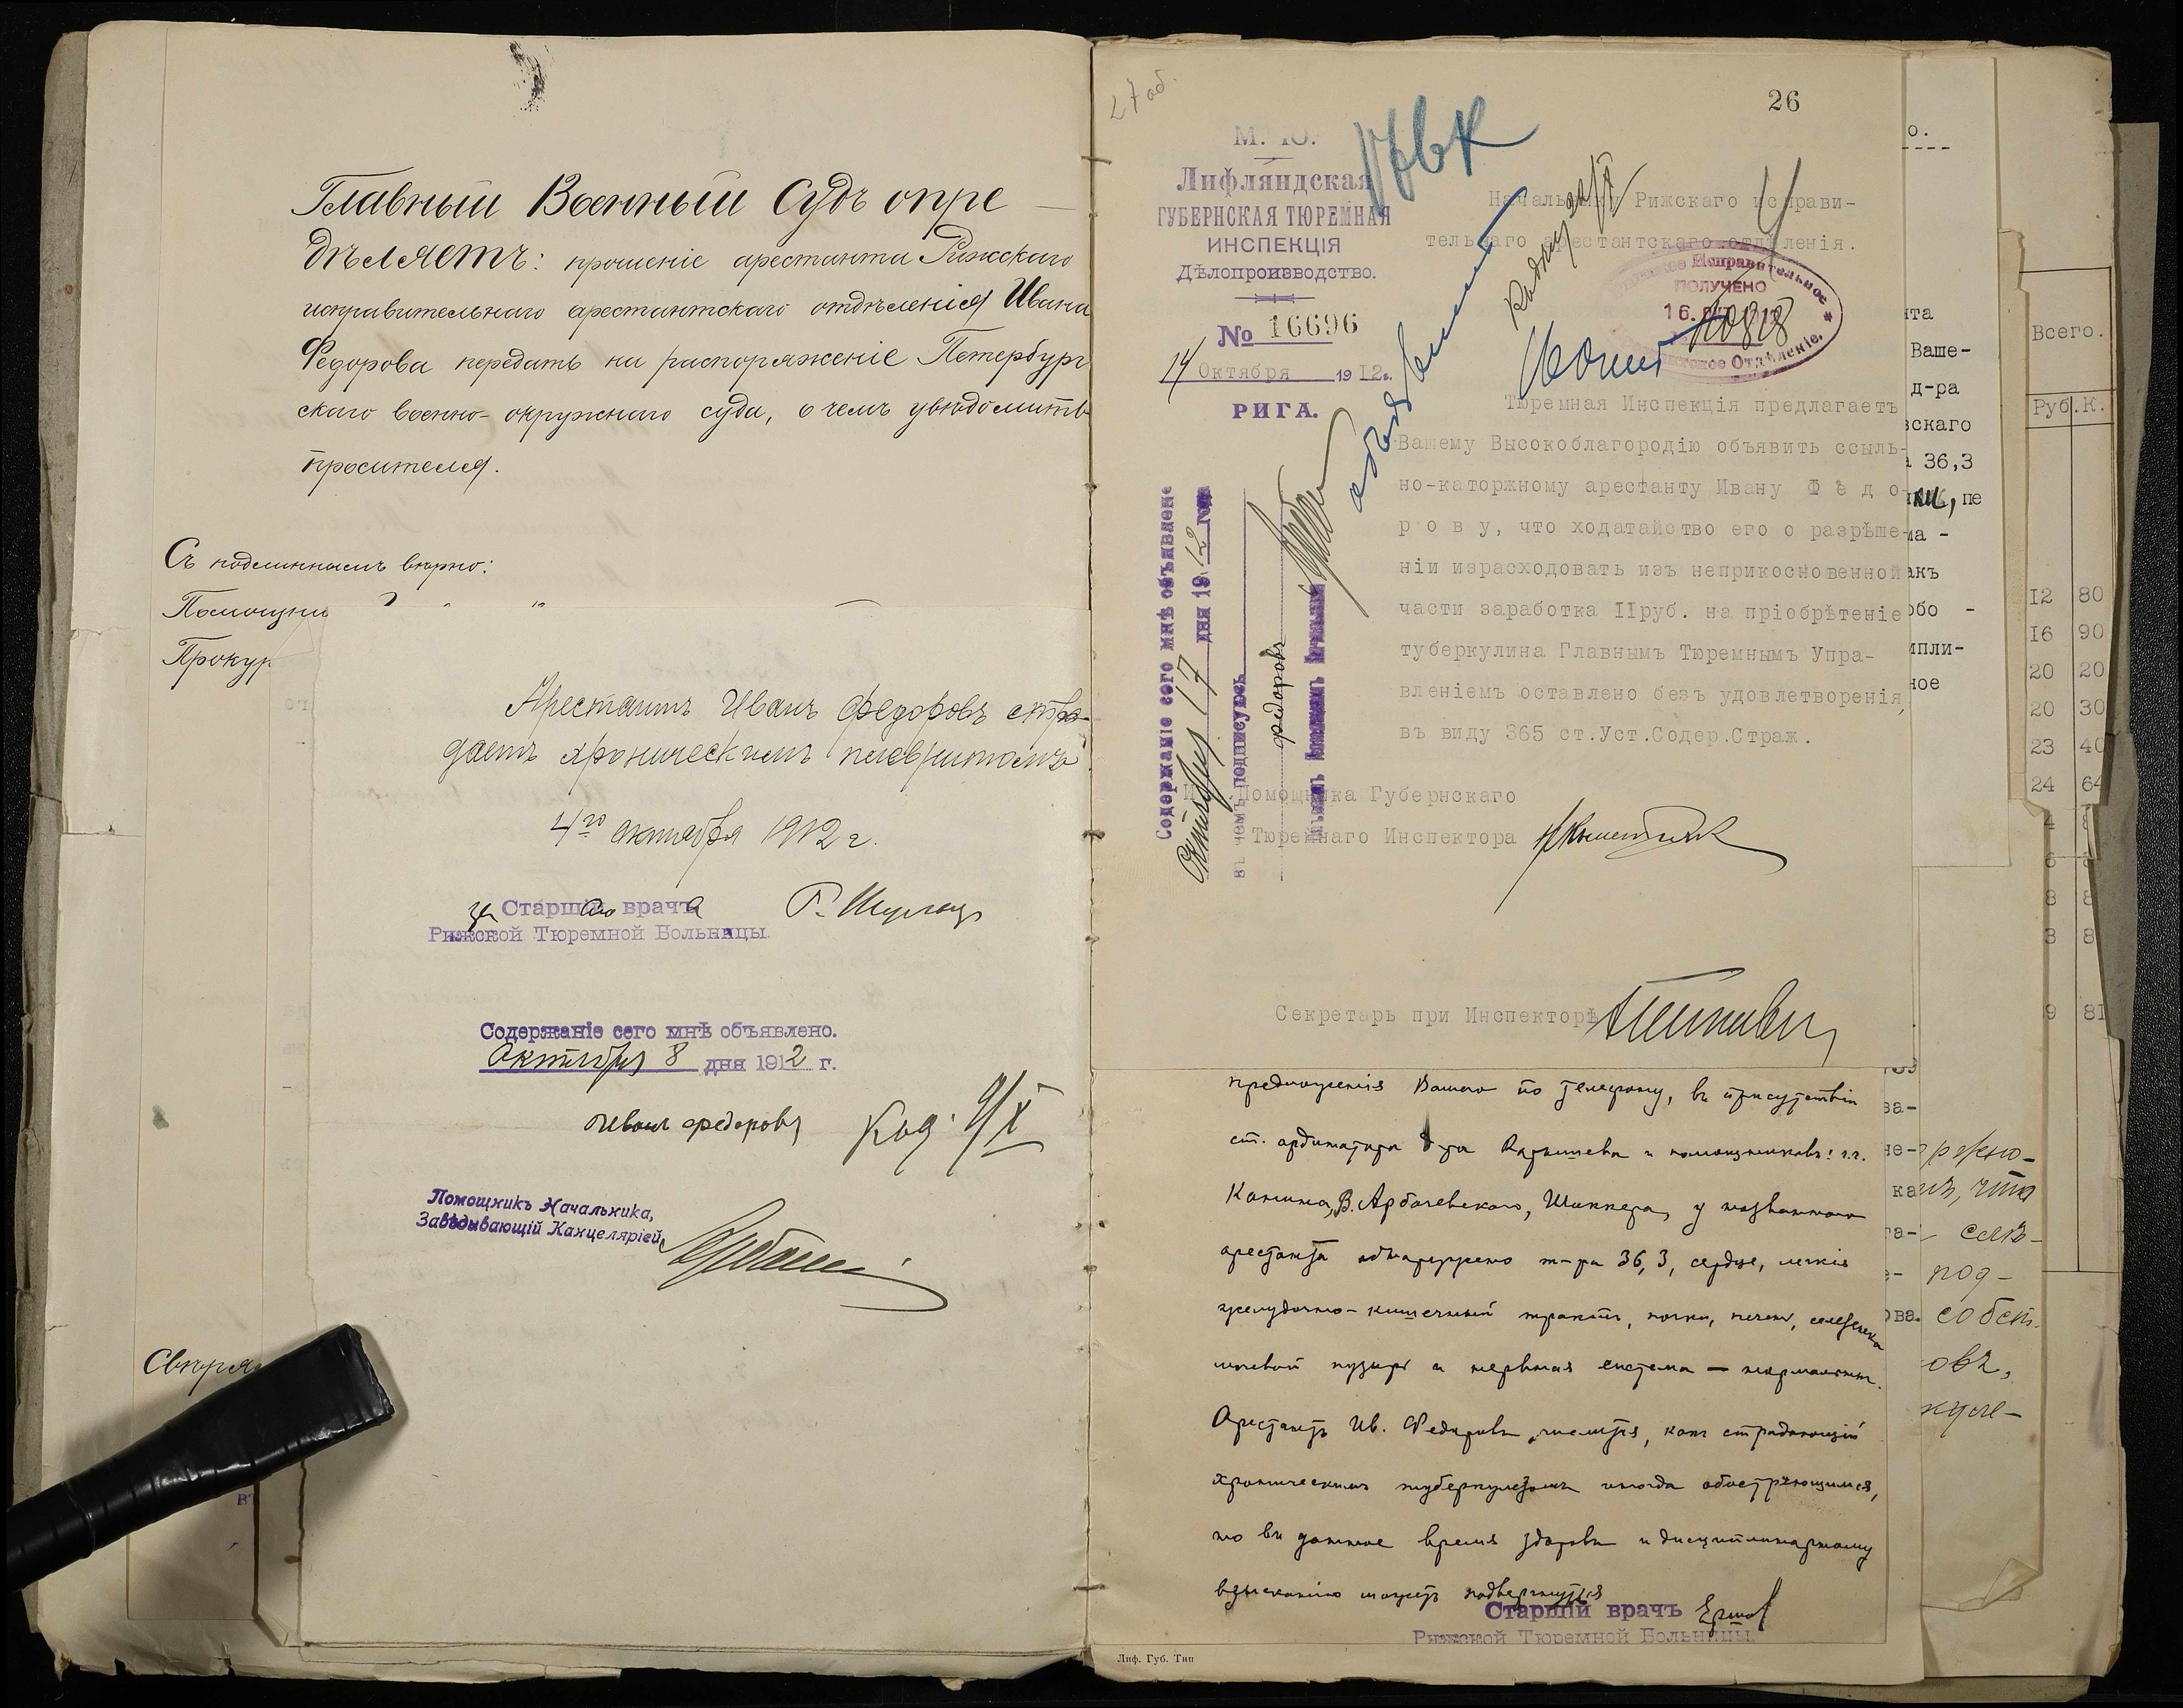 Главный Военный Судъ опре-
дѣляетъ: прошеніе арестанта Рижскаго
исправительнаго арестантскаго отдѣленія Ивана
Федорова передать на распоряженіе Петербург
скаго военно-окружнаго суда, о чемъ увѣдомить
просителя.
Съ подлиннымъ вѣрно:
Помощни
Прокур
Арестантъ Иванъ Федоровъ стра-
даетъ хроническимъ плевритомъ
4го октября 1912 г.
за Старшаго врача
Рижской Тюремной Больницы.
Содержаніе сего мнѣ объявлено.
Октября 8 дня 1912 г.
Иванъ Федоровъ
9/X
Помощникъ Начальника,
Завѣдывающій Канцеляріей
Свѣрял
27 об.
26
М. Ю.
Лифляндская
ГУБЕРНСКАЯ ТЮРЕМНАЯ
ИНСПЕКЦІЯ
Дѣлопроизводство.
№ 16696
14 Октября 1912г.
РИГА.
Начальнику Рижскаго исправи-
тельнаго арестантскаго отдѣленія.
Исправительное
ПОЛУЧЕНО
16. ОКТ 1912
Отдѣленіе.
Тюремная Инспекція предлагаетъ
Вашему Высокоблагородію объявить ссыль-
но-каторжному арестанту Ивану Ф ѣ д о
р о в у, что ходатайство его о разрѣше-
ніи израсходовать изъ неприкосновенной
части заработка IIруб. на пріобрѣтеніе
туберкулина Главнымъ Тюремнымъ Упра-
вленіемъ оставлено безъ удовлетворенія,
въ виду 365 ст.Уст.Содер.Страж.
Содержаніе сего мнѣ объявлено
Октября 17 дня 1912 года
въ чемъ подписуюсь
Федоровъ
Помощника Губернскаго
Тюремнаго Инспектора
Секретарь при Инспекторѣ
предложенія Вашего по телефону, въ присутствіи
ст. ординатора д-ра и помощниковъ: г.г.
Конина, В. Арбачевскаго, Шиллера, у названнаго
арестанта обнаружено т-ра 36,3, сердце, легкія
желудочно-кишечный трактъ, почки, печень, селезенка
мочевой пузырь и нервная система — нормальны.
Арестантъ Ив. Федоровъ числится, какъ страдающій
хроническимъ туберкулезомъ иногда обостряющимся,
но въ данное время здоровъ и дисциплинарному
взысканію можетъ подвергнуться
Старшій врачъ
Рижской Тюремной Больницы.
Лиф. Губ. Тип
о.
нта
Ваше-
д-ра
вскаго
36,3
пе
ма -
акъ
обо -
ипли-
ное
Всего.
Руб. К.
I2 80
I6 90
20 20
20 30
23 40
24 64
собст.
овъ,